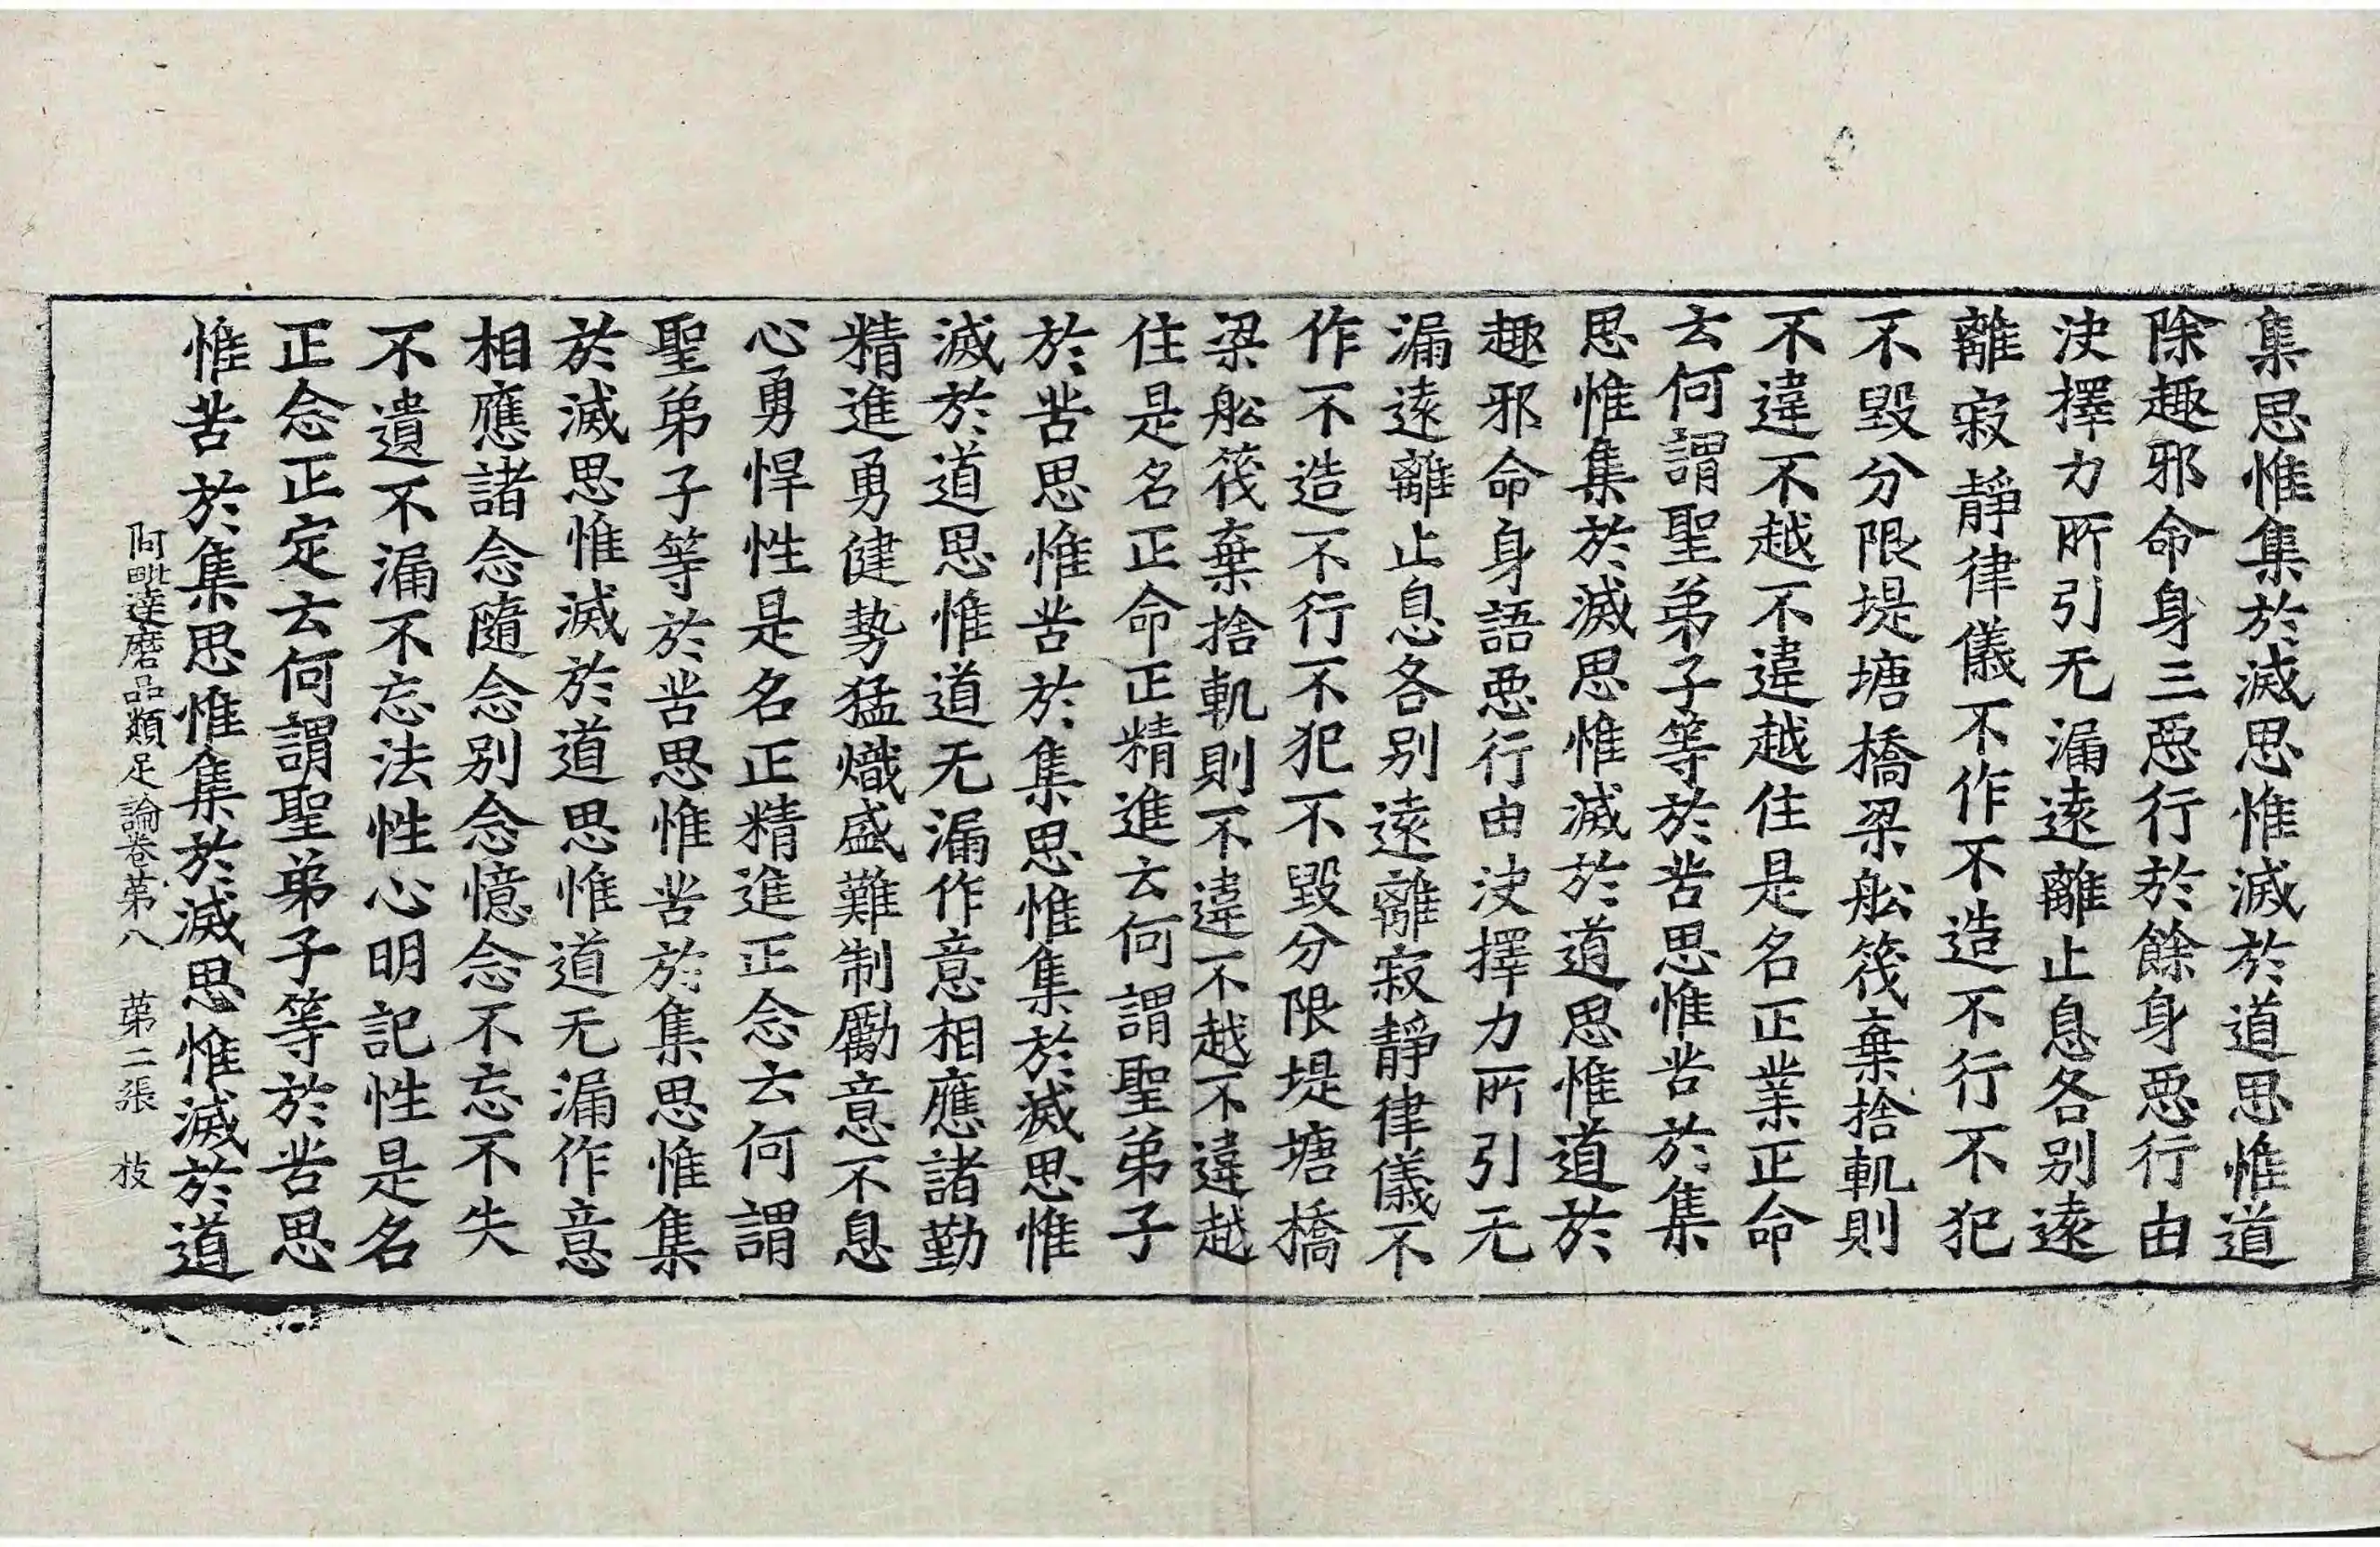 集思惟集於滅思惟滅於道思惟道
除趣邪命身三惡行於餘身惡行由
决擇力所引无漏遠離止息各別遠
離寂靜律儀不作不造不行不犯
不毀分限堤塘橋梁舩筏棄捨軌則
不違不越不違越住是名正業正命
云何謂聖弟子等於苦思惟苦於集
思惟集於滅思惟滅於道思惟道於
趣邪命身語惡行由决擇力所引无
漏遠離止息各別遠離寂靜律儀不
作不造不行不犯不毀分限堤塘橋
梁舩筏棄捨軌則不違不越不違越
住是名正命正精進云何謂聖弟子
於苦思惟苦於集思惟集於滅思惟
滅於道思惟道无漏作意相應諸勤
精進勇健勢猛熾盛難制勵意不息
心勇悍性是名正精進正念云何謂
聖弟子等於苦思惟苦於集思惟集
於滅思惟滅於道思惟道无漏作意
相應諸念隨念別念憶念不忘不失
不遺不漏不忘法性心明記性是名
正念正定云何謂聖弟子等於苦思
惟苦於集思惟集於滅思惟滅於道
阿毗達磨品類足論卷苐八 苐二張 枝